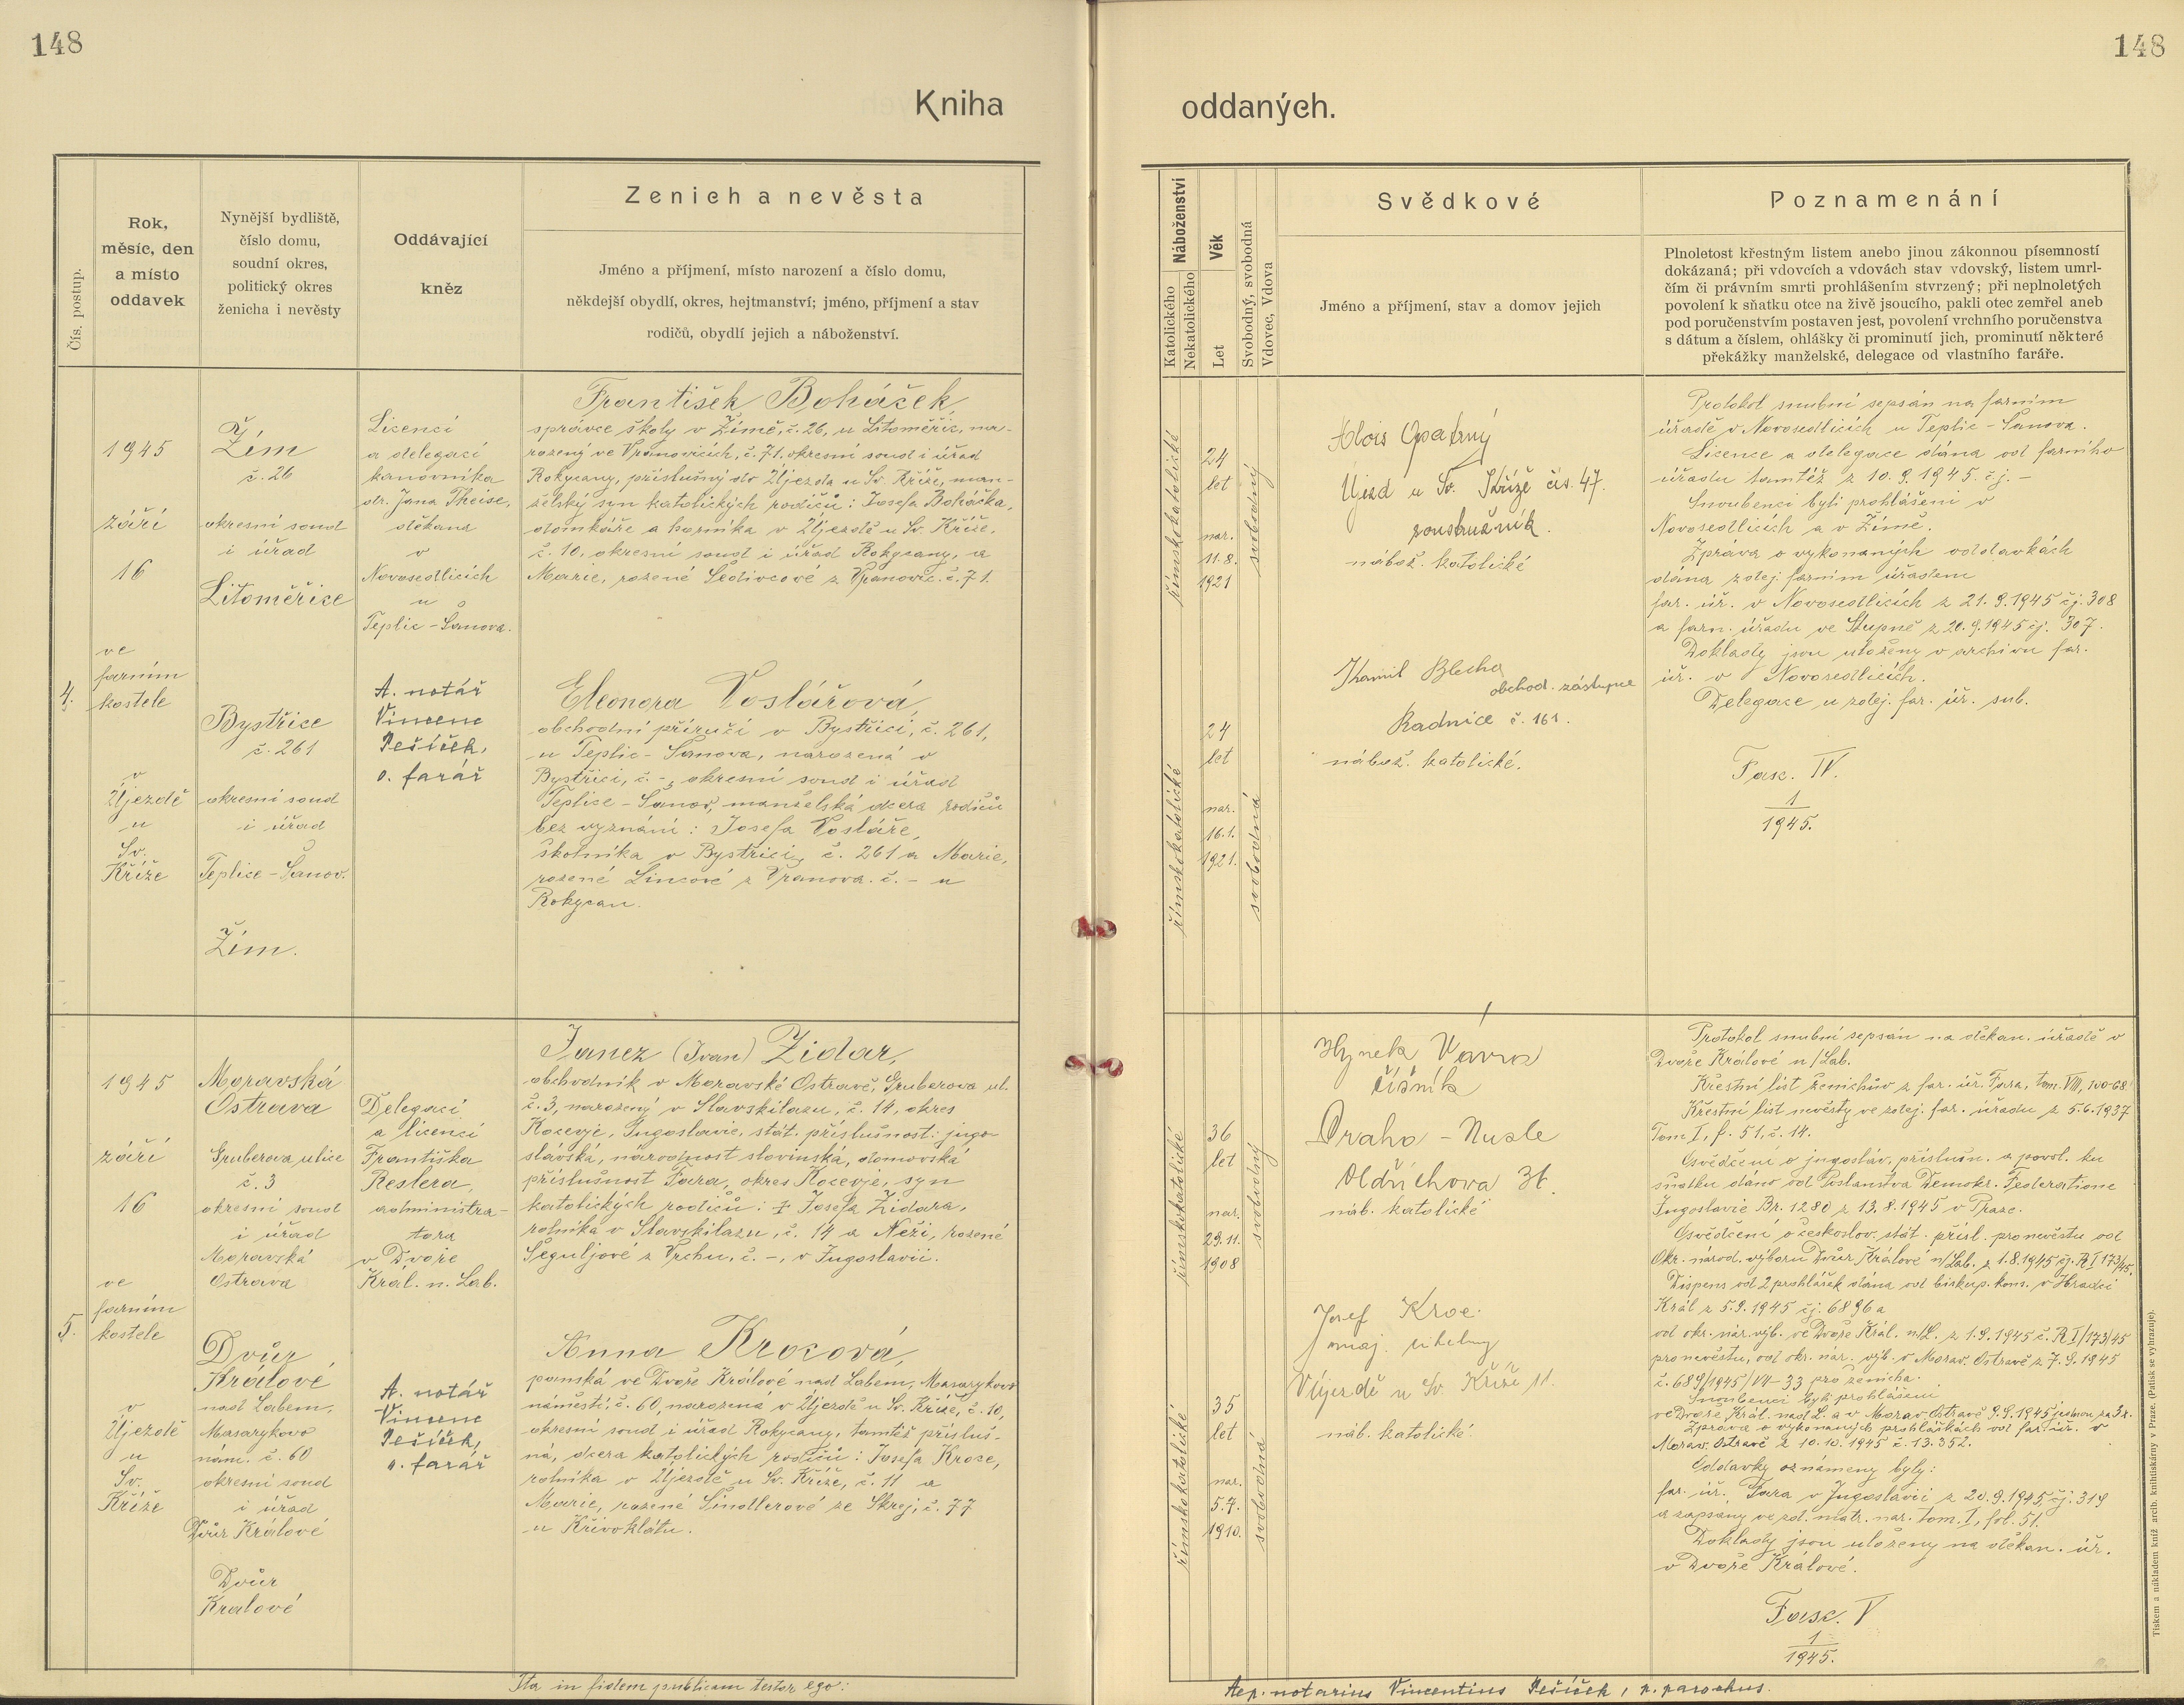 148
148
Kniha
oddaných.
Čís. postup.
Rok,
měsíc, den
a místo
oddavek
Nynější bydliště,
číslo domu,
soudní okres,
politický okres
ženicha i nevěsty
Oddávající
kněz
Ženich a nevěsta
Jméno a příjmení, místo narození a číslo domu,
někdejší obydlí, okres, hejtmanství; jméno, příjmení a stav
rodičů, obydlí jejich a náboženství.
Náboženství
Katolického
Nekatolického
Věk
Let
Svobodný, svobodná
Vdovec, Vdova
Svědkové
Jméno a příjmení, stav a domov jejich
Poznamenání
Plnoletost křestným listem anebo jinou zákonnou písemností
dokázaná; při vdovcích a vdovách stav vdovský, listem umrl-
čím či právním smrti prohlášením stvrzený; při neplnoletých
povolení k sňatku otce na živě jsoucího, pakli otec zemřel aneb
pod poručenstvím postaven jest, povolení vrchního poručenstva
s dátum a číslem, ohlášky či prominutí jich, prominutí některé
překážky manželské, delegace od vlastního faráře.
4.
1945
září
16
ve
farním
kostele
v
Újezdě
u
Sv.
Kříže
Žim
č. 26
okresní soud
i úřad
Litoměřice
Bystřice
č. 261
okresní soud
i úřad
Teplice-Šanov.
Žim.
Licencí
a delegací
kanovníka
dr. Jana Theise,
děkana
v
Novosedlicích
u
Teplic-Šanova.
A. notář
Vincenc
Pešíček,
o. farář
František Boháček,
správce školy v Žimě, č. 26, u Litoměřic, na-
rozený ve Vranovicích, č. 71. okresní soud i úřad
Rokycany, příslušný do Újezda u Sv. Kříže, man-
želský syn katolických rodičů: Josefa Boháčka,
domkáře a horníka v Újezdě u Sv. Kříže,
č. 10, okresní soud i úřad Rokycany, a
Marie, rozené Šedivcové z Vranovic. č. 71.
Eleonora Voslářová,
obchodní příručí v Bystřici, č. 261,
u Teplic-Šanova, narozená v
Bystřici, č. -, okresní soud i úřad
Teplice-Šanov, manželská dcera rodičů
bez vyznání: Josefa Vosláře,
školníka v Bystřici, č. 261 a Marie,
rozené Lincové z Vranova. č. - u
Rokycan.
římskokatolické
24
let
nar.
11.8.
1921
svobodný
římskokatolické
24
let
nar.
16.1.
1921.
svobodná
Alois Opatrný
Újezd u Sv. Kříže čís. 47.
soustružník.
nábož. katolické
Kamil Blecha
obchod. zástupce
Radnice č. 161.
nábož. katolické.
Protokol snubní sepsán na farním
úřadě v Novosedlicích u Teplic-Šanova.
Licence a delegace dána od farního
úřadu tamtéž z 10.9.1945. čj. -
Snoubenci byli prohlášeni v
Novosedlicích a v Žimě.
Zpráva o vykonaných oddavkách
dána zdej. farním úřadem
far. úř. v Novosedlicích z 21.9.1945 čj. 308
a farn. úřadu ve Stupně z 20.9.1945 čj. 307.
Doklady jsou uloženy v archivu far.
úř. v Novosedlicích.
Delegace u zdej. far. úř. sub.
Fasc. IV.
1
1945.
5.
1945
září
16
ve
farním
kostele
v
Újezdě
u
Sv.
Kříže
Moravská
Ostrava
Gruberova ulice
č. 3
okresní soud
i úřad
Moravská
Ostrava
Dvůr
Králové
nad Labem,
Masarykovo
nám. č. 60
okresní soud
i úřad
Dvůr Králové
Dvůr
Králové
Delegací
a licencí
Františka
Reslera,
administrá-
tora
v Dvoře
Král. n. Lab.
A. notář
Vincenc
Pešíček,
o. farář
Janez (Ivan) Zidar,
obchodník v Moravské Ostravě, Gruberova ul.
č. 3, narozený v Slavskilazu, č. 14, okres
Kocevje, Jugoslavie, stát. příslušnost: jugo-
slávská, národnost slovinská, domovská
příslušnost Fara, okres Kocevje, syn
katolických rodičů: † Josefa Zidara,
rolníka v Slavskilazu, č. 14 a Neži, rozené
Šeguljové z Vrchu, č. -, v Jugoslavii.
Anna Krocová,
panská ve Dvoře Králové nad Labem, Masarykovo
náměstí, č. 60, narozená v Újezdě u Sv. Kříže, č. 10,
okresní soud i úřad Rokycany, tamtéž přísluš-
ná, dcera katolických rodičů: Josefa Kroce,
rolníka v Újezdě u Sv. Kříže, č. 11 a
Marie, rozené Šindlerové ze Skrej, č. 77
u Křivoklátu.
římskokatolické
36
let
nar.
29.11.
1908
svobodný
římskokatolické
35
let
nar.
5.7.
1910.
svobodná
Hynek Vavra
číšník
Praha - Nusle
Oldřichova
náb. katolické
Josef Kroc
maj. uhelny
Újezdě u Sv. Kříže 11.
náb. katolické.
Protokol snubní sepsán na děkan. úřadě v
Dvoře Králové n/Lab.
Křestní list ženichův z far. úř. Fara, tom. VIII, 100-68
Křestní list nevěsty ve zdej. far. úřadu z 5.6.1937
Tom I, f. 51, č. 14.
Osvědčení o jugosláv. příslušn. a povol. ku
sňatku dáno od Poslanstva Demokr. Federatione
Jugoslavie Br. 1280 z 13.8.1945 v Praze.
Osvědčení o českoslov. stát. přísl. pro nevěstu od
Okr. národ. výboru Dvůr Králové n/Lab. z 1.8.1945 čj. R I 173/45.
Dispens od 2 prohlášek dána od biskup. kons. v Hradci
Král z 5.9.1945 čj. 6896 a
od okr. nár. výb. ve Dvoře Král. n/L. z 1.9.1945 č. R I/173/45
pro nevěstu, od okr. nár. výb. v Morav. Ostravě z 7.9.1945
č. 689/1945/VI-33 pro ženicha.
Snoubenci byli prohlášeni
ve Dvoře Král. nad L. a v Morav. Ostravě 9.9.1945 jednou za 3x.
Zpráva o vykonaných prohláškách od far. úř. v
Morav. Ostravě z 10.10.1945 č. 13.352.
Oddavky oznámeny byly:
far. úř. Fara v Jugoslavii z 20.9.1945, čj. 319
a zapsány ve zd. matr. nar. tom. I, fol. 51.
Doklady jsou uloženy na děkan. úř.
v Dvoře Králové.
Fasc. V
1
1945.
Ita in fidem publicam testor ego:
Aep. notarius Vincentius Pešíček, p. parochus.
Tiskem a nákladem kníž. arcib. knihtiskárny v Praze. (Patisk se vyhrazuje).